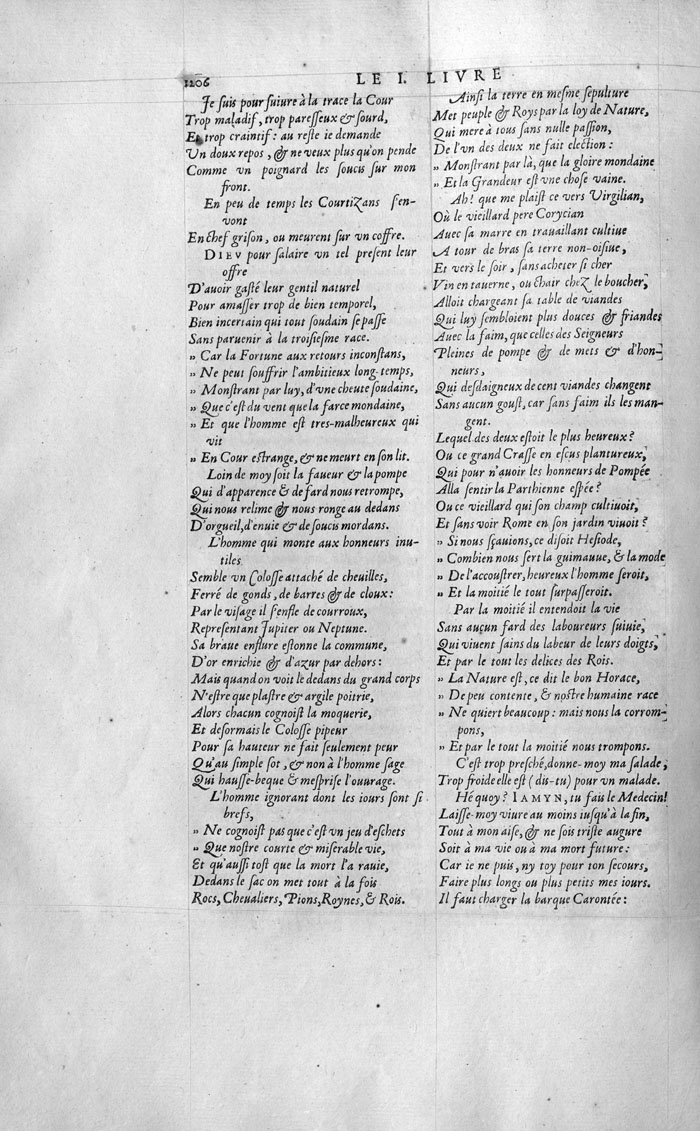 1206
LE I. LIVRE
Je suis pour suiure à la trace la Cour
Trop maladif, trop paresseux & sourd,
Et trop craintif: au reste ie demande
Vn doux repos, & ne veux plus qu'on pende
Comme vn poignard les soucis sur mon
front.
En peu de temps les Courtizans s'en-
vont
En chef grison, ou meurent sur vn coffre.
DIEV pour salaire vn tel present leur
offre
D'auoir gasté leur gentil naturel
Pour amasser trop de bien temporel,
Bien incertain qui tout soudain se passe
Sans paruenir à la troisiesme race.
» Car la Fortune aux retours inconstans,
» Ne peut souffrir l'ambitieux long-temps,
» Monstrant par luy, d'vne cheute soudaine,
» Que c'est du vent que la farce mondaine,
» Et que l'homme est tres-malheureux qui
vit
» En Cour estrange, & ne meurt en son lit.
Loin de moy soit la faueur & la pompe
Qui d'apparence & de fard nous retrompe,
Qui nous relime & nous ronge au dedans
D'orgueil, d'enuie & de soucis mordans.
L'homme qui monte aux honneurs inu-
tiles
Semble vn Colosse attaché de cheuilles,
Ferré de gonds, de barres & de cloux:
Par le visage il s'enfle de courroux,
Representant Jupiter ou Neptune.
Sa braue enflure estonne la commune,
D'or enrichie & d'azur par dehors:
Mais quand on voit le dedans du grand corps
N'estre que plastre & argile poitrie,
Alors chacun cognoist la moquerie,
Et desormais le Colosse pipeur
Pour sa hauteur ne fait seulement peur
Qu'au simple sot, & non à l'homme sage
Qui hausse-beque & mesprise l'ouurage.
L'homme ignorant dont les iours sont si
brefs,
» Ne cognoist pas que c'est vn jeu d'eschets
» Que nostre courte & miserable vie,
Et qu'aussi tost que la mort l'a rauie,
Dedans le sac on met tout à la fois
Rocs, Cheualiers, Pions, Roynes, & Rois.
Ainsi la terre en mesme sepulture
Met peuple & Roys par la loy de Nature,
Qui mere à tous sans nulle passion,
De l'vn des deux ne fait election:
» Monstrant par là, que la gloire mondaine
» Et la Grandeur est vne chose vaine.
Ah! que me plaist ce vers Virgilian,
Où le vieillard pere Corycian
Auec sa marre en trauaillant cultiue
A tour de bras sa terre non-oisiue,
Et vers le soir, sans acheter si cher
Vin en tauerne, ou chair chez le boucher,
Alloit chargeant sa table de viandes
Qui luy sembloient plus douces & friandes
Auec la faim, que celles des Seigneurs
Pleines de pompe & de mets & d'hon-
neurs,
Qui desdaigneux de cent viandes changent
Sans aucun goust, car sans faim ils les man-
gent.
Lequel des deux estoit le plus heureux?
Ou ce grand Crasse en escus plantureux,
Qui pour n'auoir les honneurs de Pompée
Alla sentir la Parthienne espée?
Ou ce vieillard qui son champ cultiuoit,
Et sans voir Rome en son jardin viuoit?
» Si nous sçauions, ce disoit Hesiode,
» Combien nous sert la guimauue, & la mode
» De l'accoustrer, heureux l'homme seroit,
» Et la moitié le tout surpasseroit.
Par la moitié il entendoit la vie
Sans aucun fard des laboureurs suiuie,
Qui viuent sains du labeur de leurs doigts,
Et par le tout les delices des Rois.
» La Nature est, ce dit le bon Horace,
» De peu contente, & nostre humaine race
» Ne quiert beaucoup: mais nous la corrom-
pons,
» Et par le tout la moitié nous trompons.
C'est trop presché, donne-moy ma salade,
Trop froide elle est (dis-tu) pour vn malade.
Hé quoy? IAMYN, tu fais le Medecin!
Laisse-moy viure au moins iusqu'à la fin,
Tout à mon aise, & ne sois triste augure
Soit à ma vie ou à ma mort future:
Car ie ne puis, ny toy pour ton secours,
Faire plus longs ou plus petits mes iours.
Il faut charger la barque Carontée: